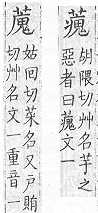 胡隈切艸名芋之
惡者曰文一
姑回切菜名又戶賄
切艸名文一重音一